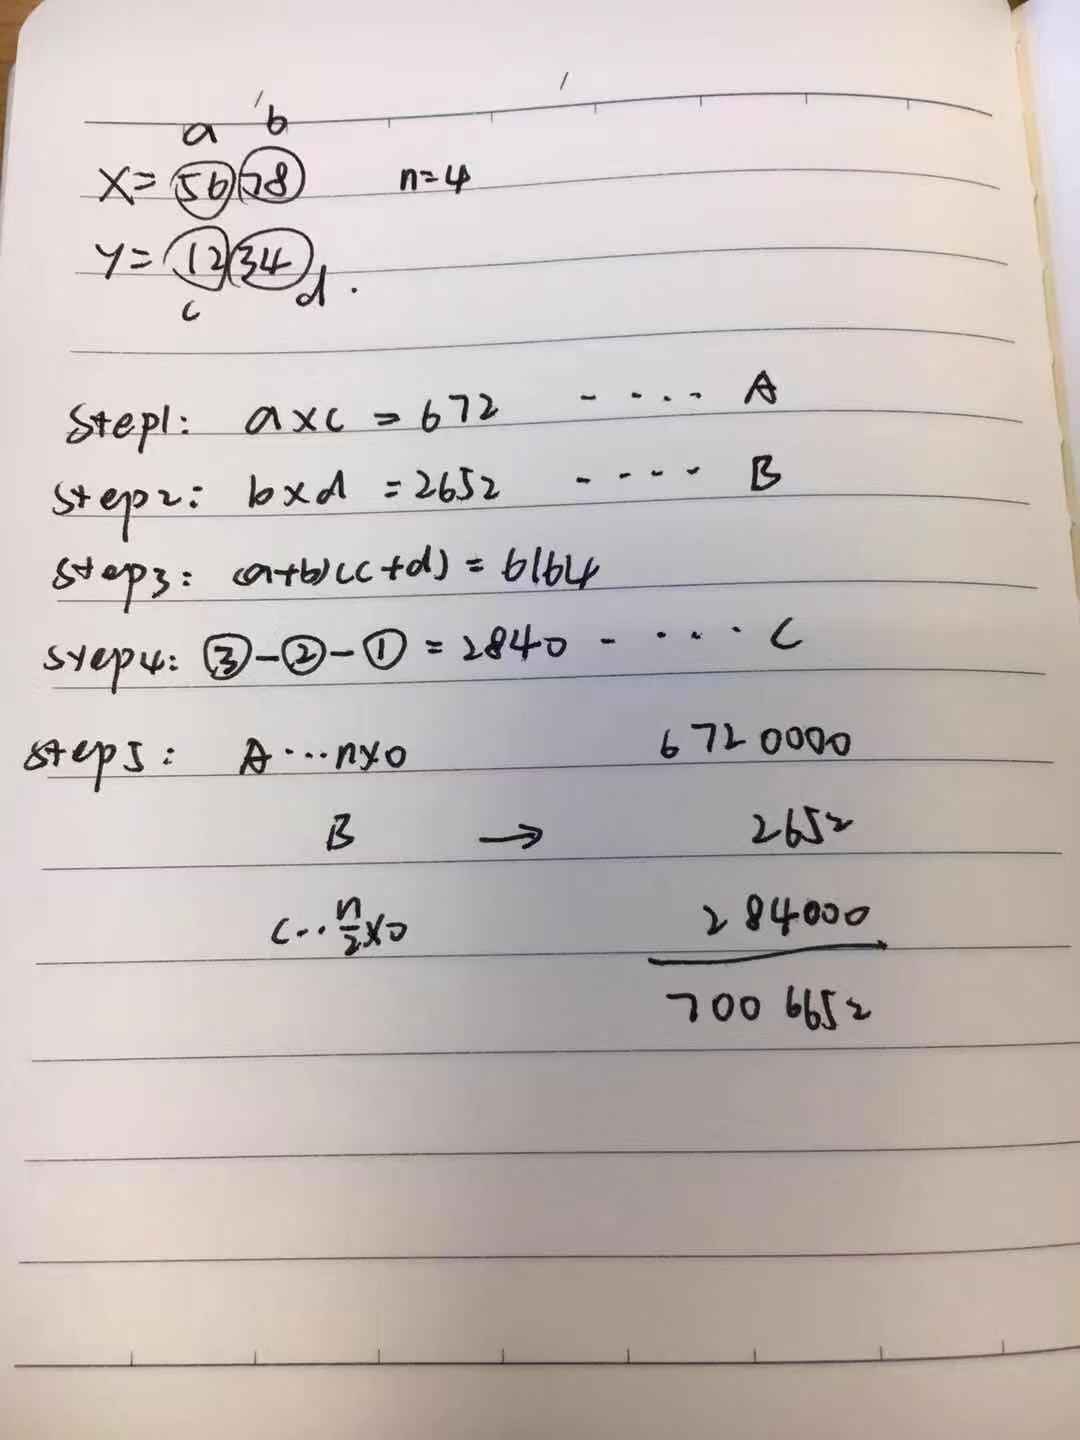 a b
X= 56 78 n=4
Y= 12 34
c d .
Step1: a×c = 672 - · · · · A
Step2: b×d = 2652 - - - - B
Step3: (a+b)(c+d) = 6164
Step4: ③-②-① = 2840 - · · · · C
Step5: A···n×0 6720000
B → 2652
C··n/2×0 284000
7006652